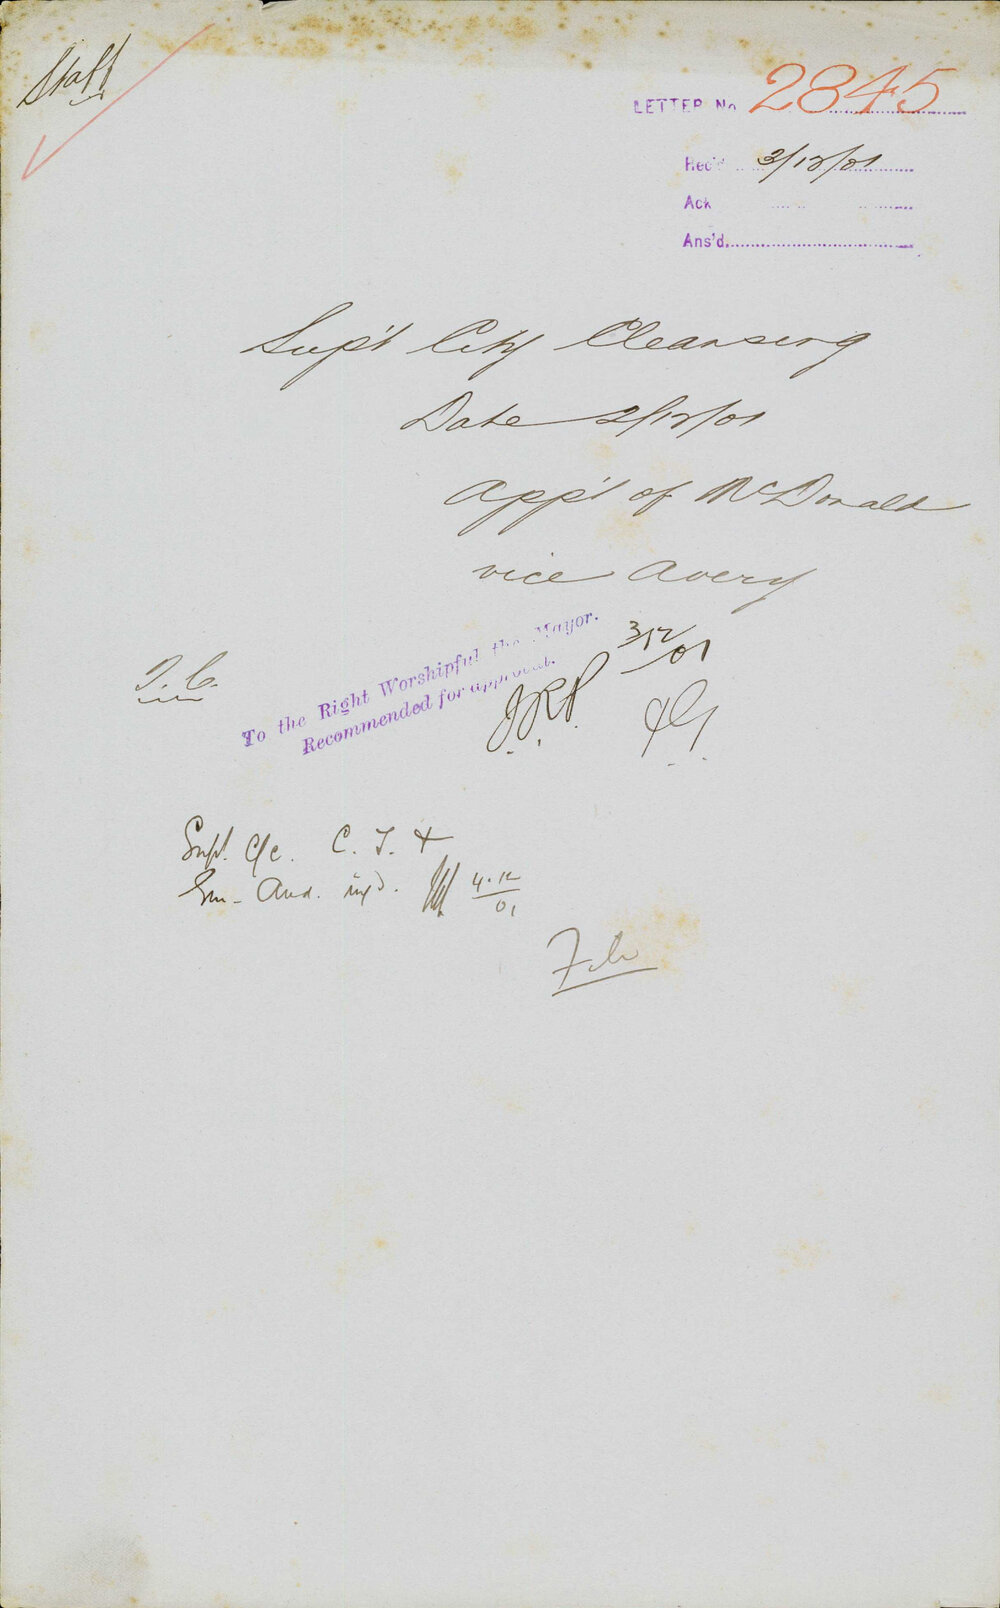 Staff
LETTER No 2845
Rec'd 3/12/01
Ack
Ans'd
Sup't City Cleansing
Date 2/12/01
App't of McDonald
vice Avery
T.C.
To the Right Worshipful the Mayor.
Recommended for approval.
3/12/01
Supt. C/c. C. T. &
Aud. inf'd. 4.12/01
File